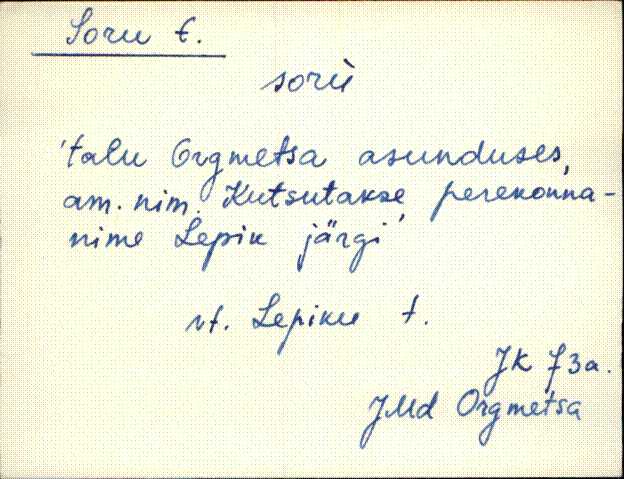 Soru t.
sorù
'talu Orgmetsa asunduses,
am. nim. Kutsutakse perekonna-
nime Lepik järgi'
vt. Lepiku t.
JK 73a.
JMd Orgmetsa